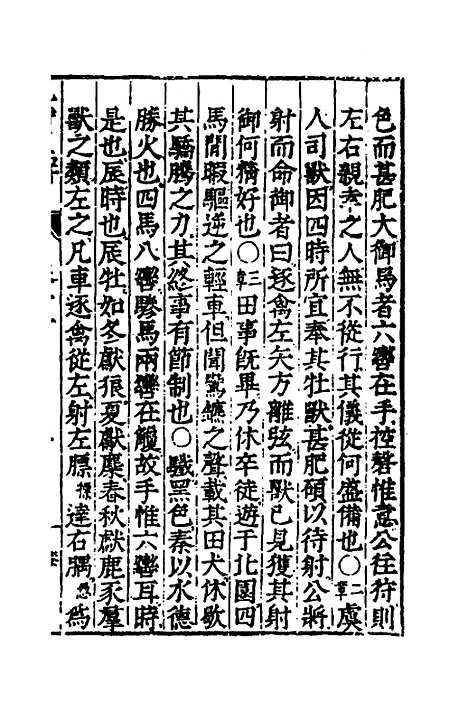 色而甚肥大御馬者六轡在手控磬惟意公往狩則
左右親幸之人無不從行其儀從何盛備也〇二章虞
人司獸因四時所宜奉其牡獸甚肥碩以待射公將
射而命御者曰逐禽左矢方離弦而獸已見獲其射
御何精好也〇三章田事既畢乃休卒徒遊于北園四
馬閒暇驅逆之輕車但聞鸞鑣之聲載其田犬休歇
其驕騰之力其終事有節制也〇驖黑色秦以水德
勝火也四馬八轡驂馬兩轡在觼故手惟六轡耳時
是也辰時也辰牡如冬獻狼夏獻麋春秋獻鹿豕羣
獸之類左之凡車逐禽從左射左膘摽達右腢愚為